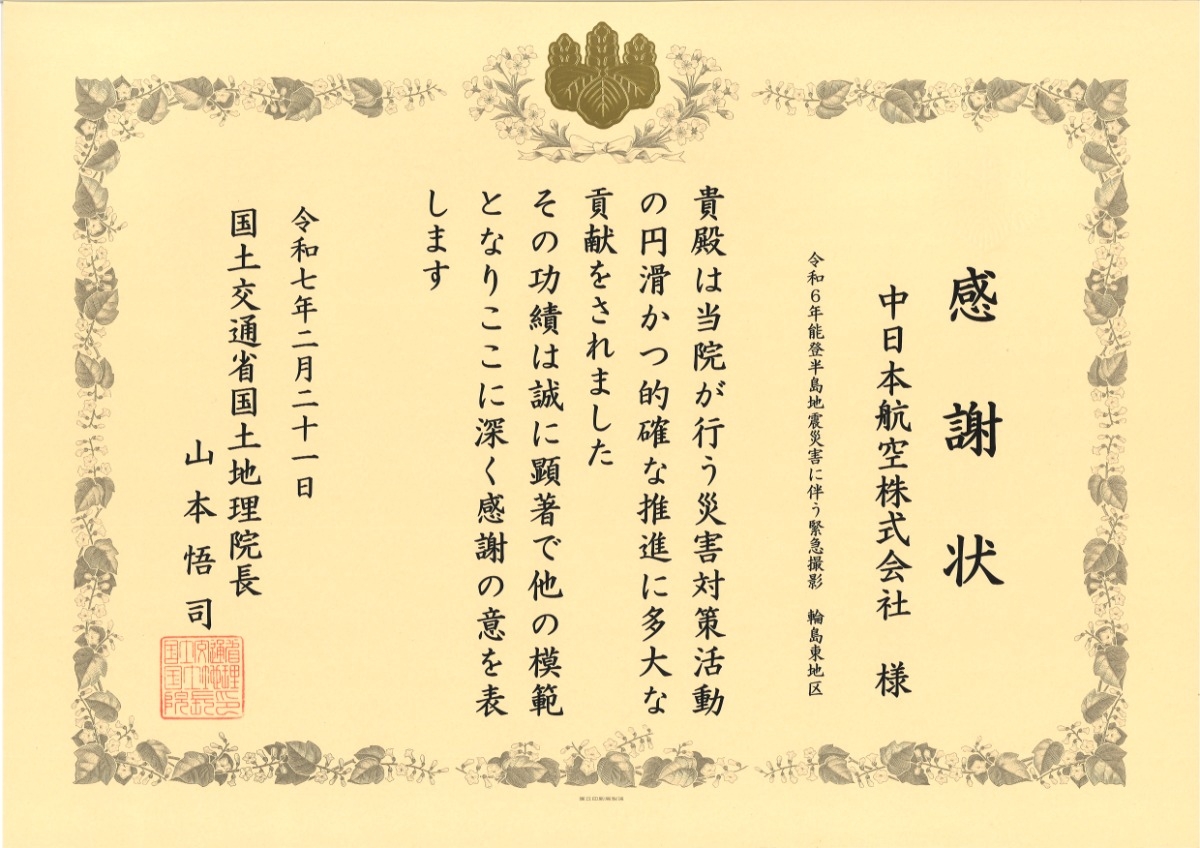 感謝状
中日本航空株式会社 様
令和6年能登半島地震災害に伴う緊急撮影 輪島東地区
貴殿は当院が行う災害対策活動
の円滑かつ的確な推進に多大な
貢献をされました
その功績は誠に顕著で他の模範
となりここに深く感謝の意を表
します
令和七年二月二十一日
国土交通省国土地理院長
山本悟司